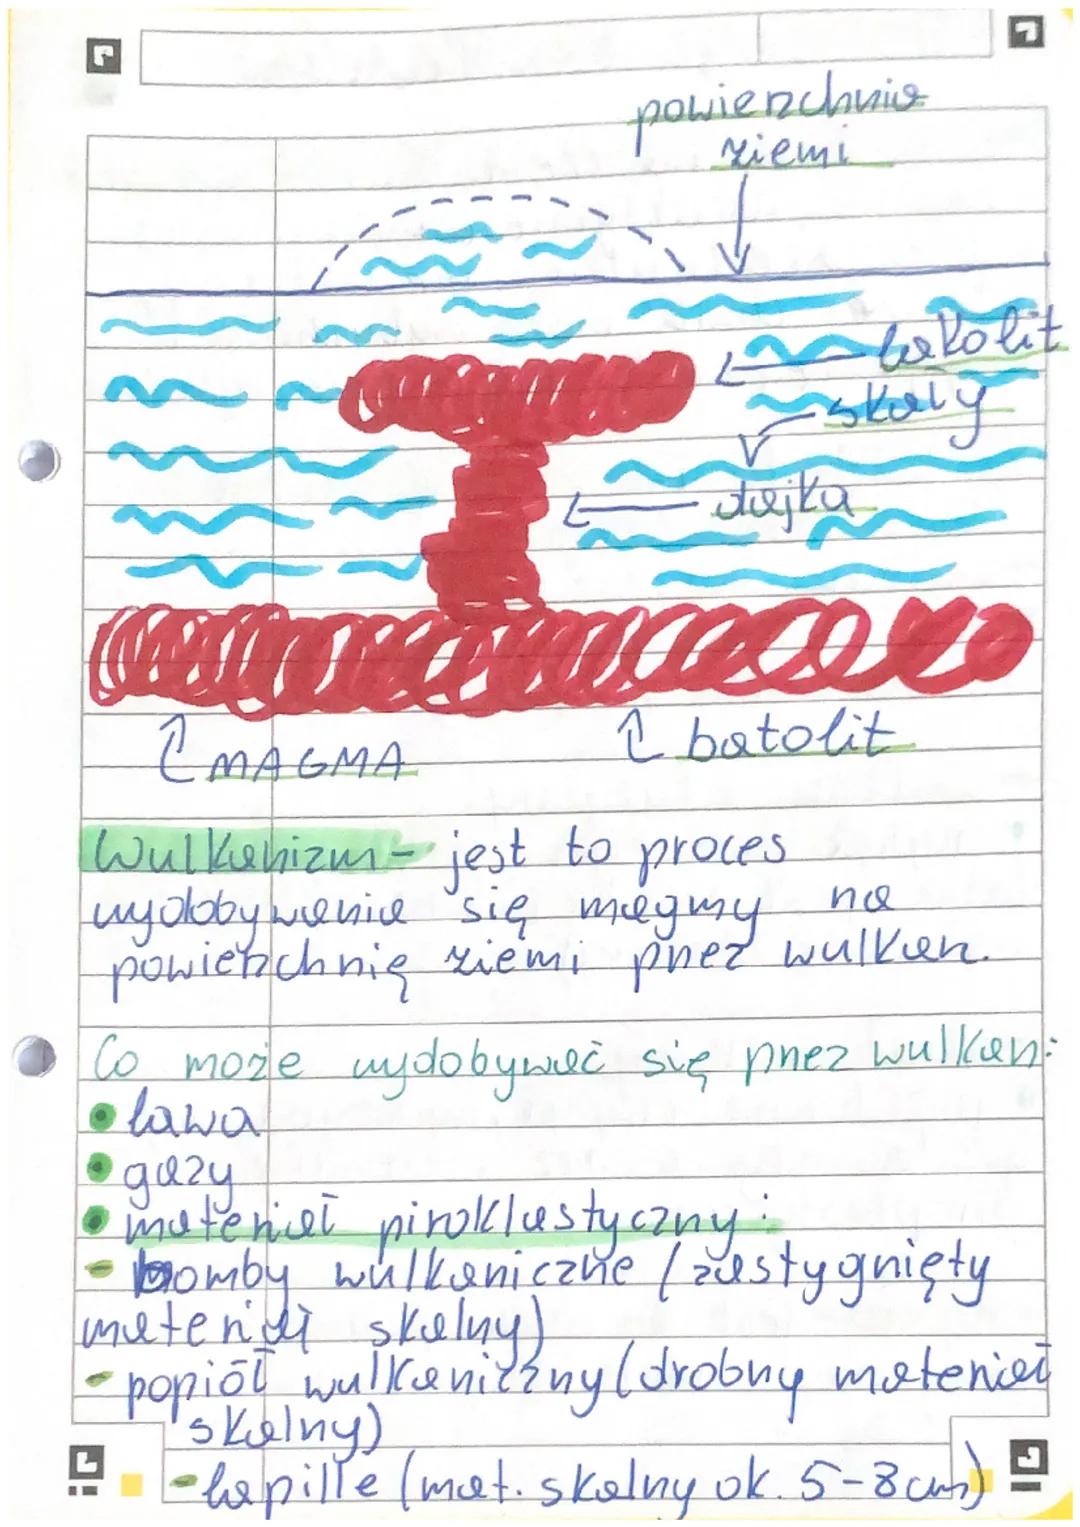 powierzchnia
ziemi
lakolit
skały
dajka
MAGMA
batolit
Wulkanizm - jest to proces
wydobywania się magmy na
powierzchnię ziemi przez wulkan.
Co może wydobywać się przez wulkan:
• lawa
• gazy
• materiał piroklastyczny:
- bomby wulkaniczne (zastygnięty
materiał skalny)
- popiół wulkaniczny (drobny materiał
skalny)
- lapille (mat. skalny ok. 5-8cm)